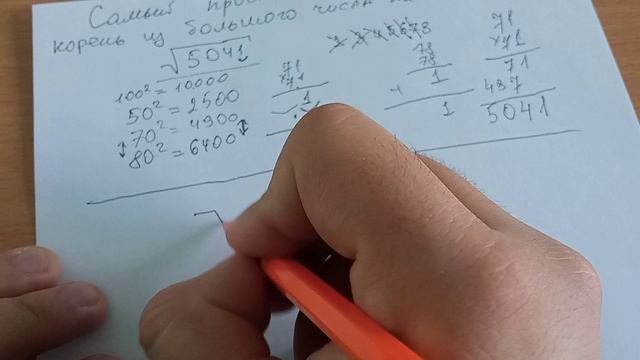 Самый прос
корень из большого числа
√5041
100² = 10000
50² = 2500
↕ 70² = 4900 ↕
80² = 6400
71
×71
1
78
78
+ 1
1
71
×71
71
497
5041